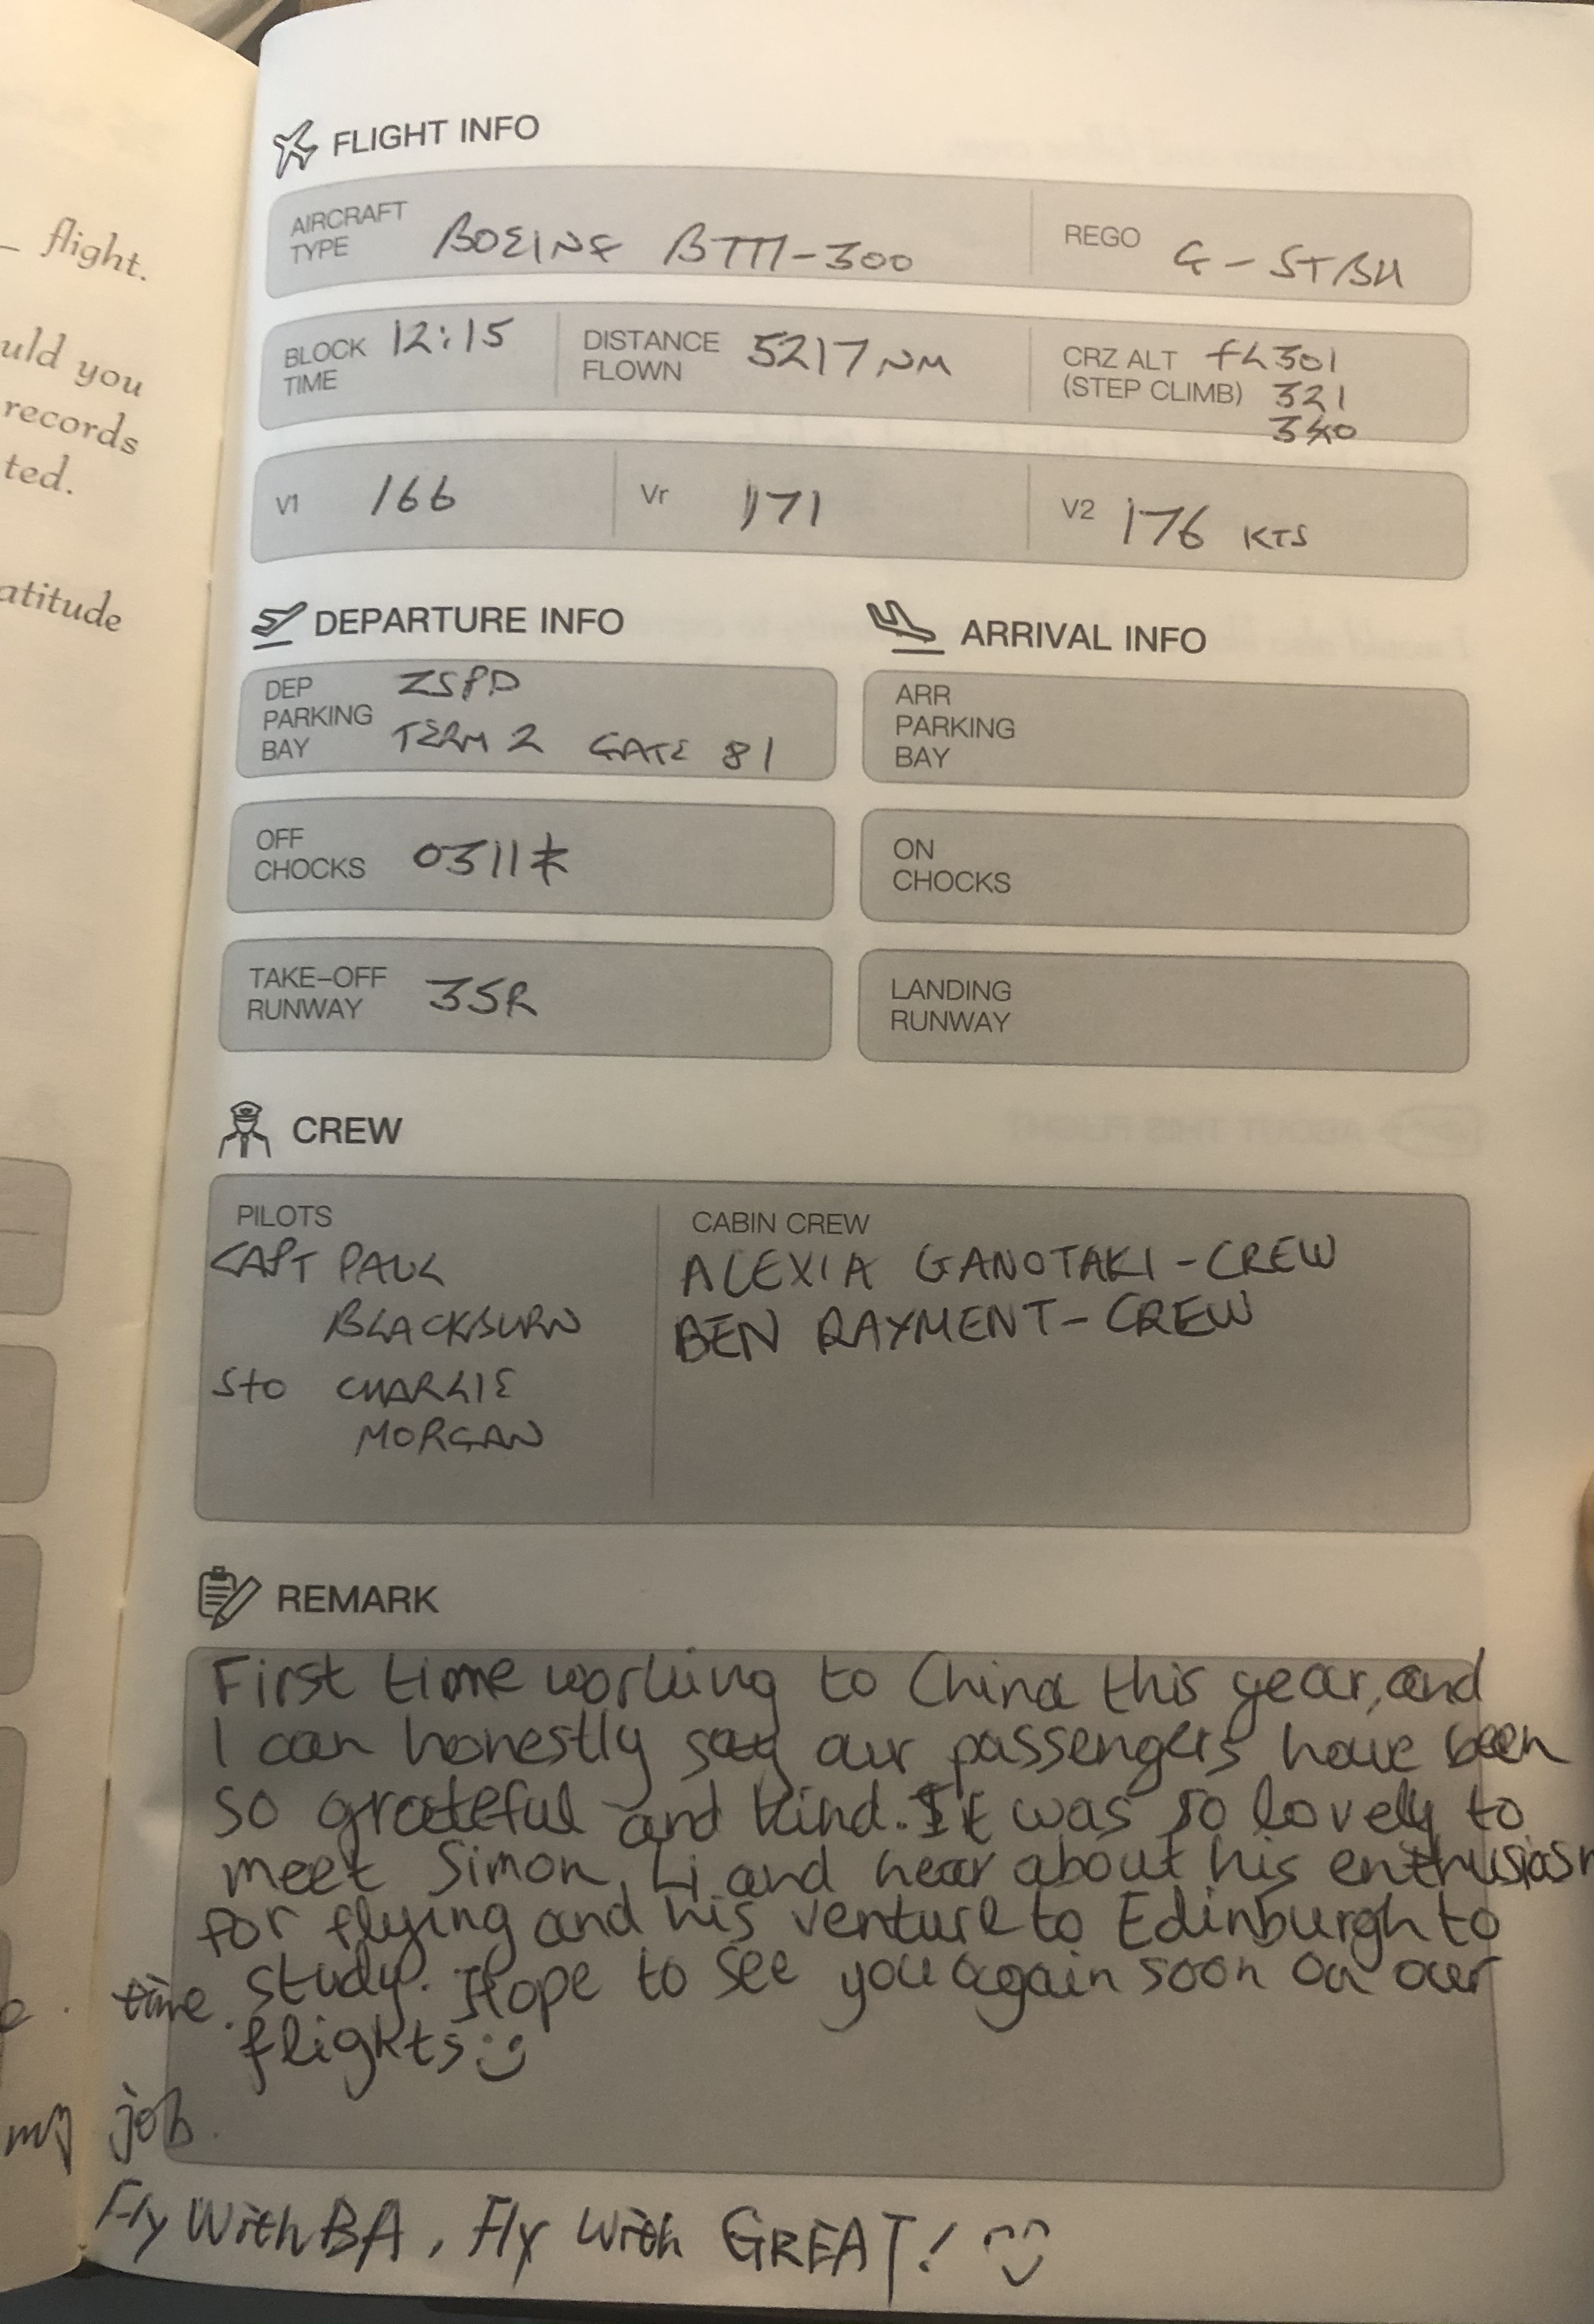 flight.
uld you
records
ted.
atitude
FLIGHT INFO
AIRCRAFT TYPE BOEING B777-300
REGO G-STBH
BLOCK TIME 12:15
DISTANCE FLOWN 5217 NM
CRZ ALT (STEP CLIMB) FL301
321
340
V1 166
Vr 171
V2 176 KTS
DEPARTURE INFO
ARRIVAL INFO
DEP PARKING BAY ZSPD
TERM 2 GATE 81
ARR PARKING BAY
OFF CHOCKS 0311Z
ON CHOCKS
TAKE-OFF RUNWAY 35R
LANDING RUNWAY
CREW
PILOTS
CAPT PAUL
BLACKBURN
SFO CHARLIE
MORGAN
CABIN CREW
ALEXIA GANOTAKI - CREW
BEN RAYMENT - CREW
REMARK
First time working to China this year, and
I can honestly say our passengers have been
so grateful and kind. It was so lovely to
meet Simon, Li and hear about his enthusiasm
for flying and his venture to Edinburgh to
study. Hope to see you again soon on our
flights
time.
my job.
Fly With BA, Fly With GREAT!